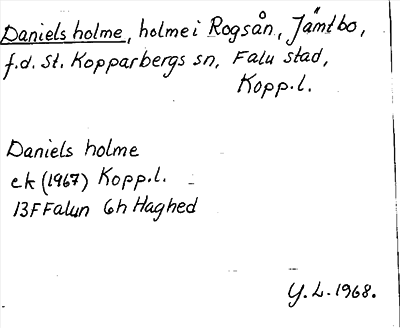 Daniels holme, holme i Rogsån, Jämtbo,
f.d. St. Kopparbergs sn, Falu stad,
Kopp.l.
Daniels holme
ek (1967) Kopp.l.
13F Falun 6h Haghed
Y.L. 1968.